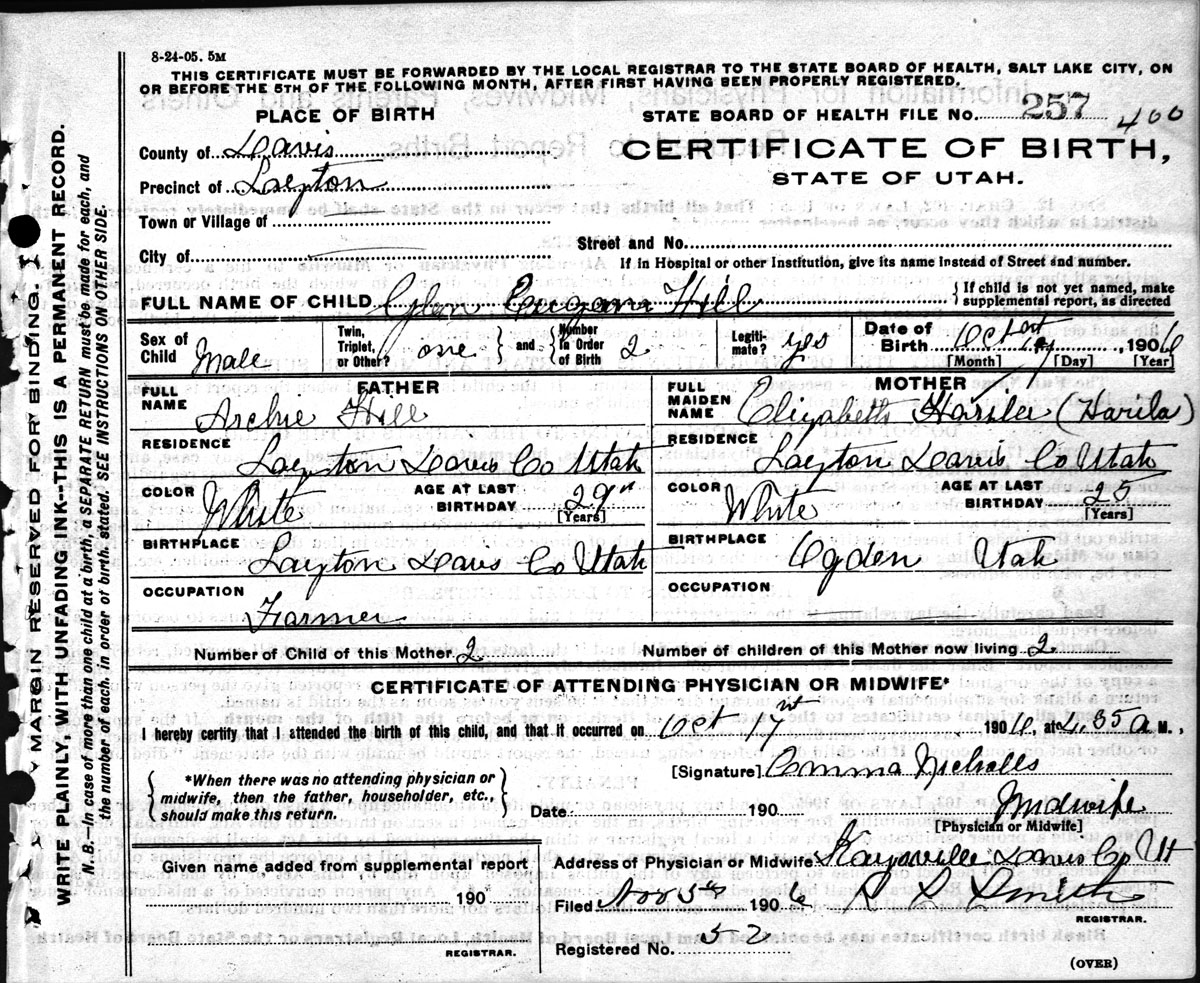 8-24-05. 5M
THIS CERTIFICATE MUST BE FORWARDED BY THE LOCAL REGISTRAR TO THE STATE BOARD OF HEALTH, SALT LAKE CITY, ON
OR BEFORE THE 5TH OF THE FOLLOWING MONTH, AFTER FIRST HAVING BEEN PROPERLY REGISTERED.
PLACE OF BIRTH
STATE BOARD OF HEALTH FILE NO. 257 400
County of Davis
CERTIFICATE OF BIRTH,
Precinct of Layton
STATE OF UTAH.
Town or Village of
Street and No.
City of
If in Hospital or other Institution, give its name instead of Street and number.
FULL NAME OF CHILD Glen Eugene Hill
If child is not yet named, make supplemental report, as directed
Sex of Child Male
Twin, Triplet, or Other? one and Number in Order of Birth 2
Legitimate? yes
Date of Birth Oct , 1906
[Month] [Day] [Year]
FATHER
FULL NAME Archie Hill
RESIDENCE Layton Davis Co Utah
COLOR White AGE AT LAST BIRTHDAY 29 [Years]
BIRTHPLACE Layton Davis Co Utah
OCCUPATION Farmer
MOTHER
FULL MAIDEN NAME Elizabeth
RESIDENCE Layton Davis Co Utah
COLOR White AGE AT LAST BIRTHDAY 25 [Years]
BIRTHPLACE Ogden Utah
OCCUPATION
Number of Child of this Mother 2 Number of children of this Mother now living 2
CERTIFICATE OF ATTENDING PHYSICIAN OR MIDWIFE*
I hereby certify that I attended the birth of this child, and that it occurred on Oct 1906, at 4.35 a M.,
*When there was no attending physician or
midwife, then the father, householder, etc.,
should make this return.
[Signature] Emma Nicholls
Date 190 Midwife
[Physician or Midwife]
Given name added from supplemental report
190
REGISTRAR.
Address of Physician or Midwife Kaysville Davis Co Ut
Filed Nov 5th 1906 R S Smith
REGISTRAR.
Registered No. 52
(OVER)
MARGIN RESERVED FOR BINDING.
WRITE PLAINLY, WITH UNFADING INK--THIS IS A PERMANENT RECORD.
N. B.--In case of more than one child at a birth, a SEPARATE RETURN must be made for each, and
the number of each, in order of birth, stated. SEE INSTRUCTIONS ON OTHER SIDE.